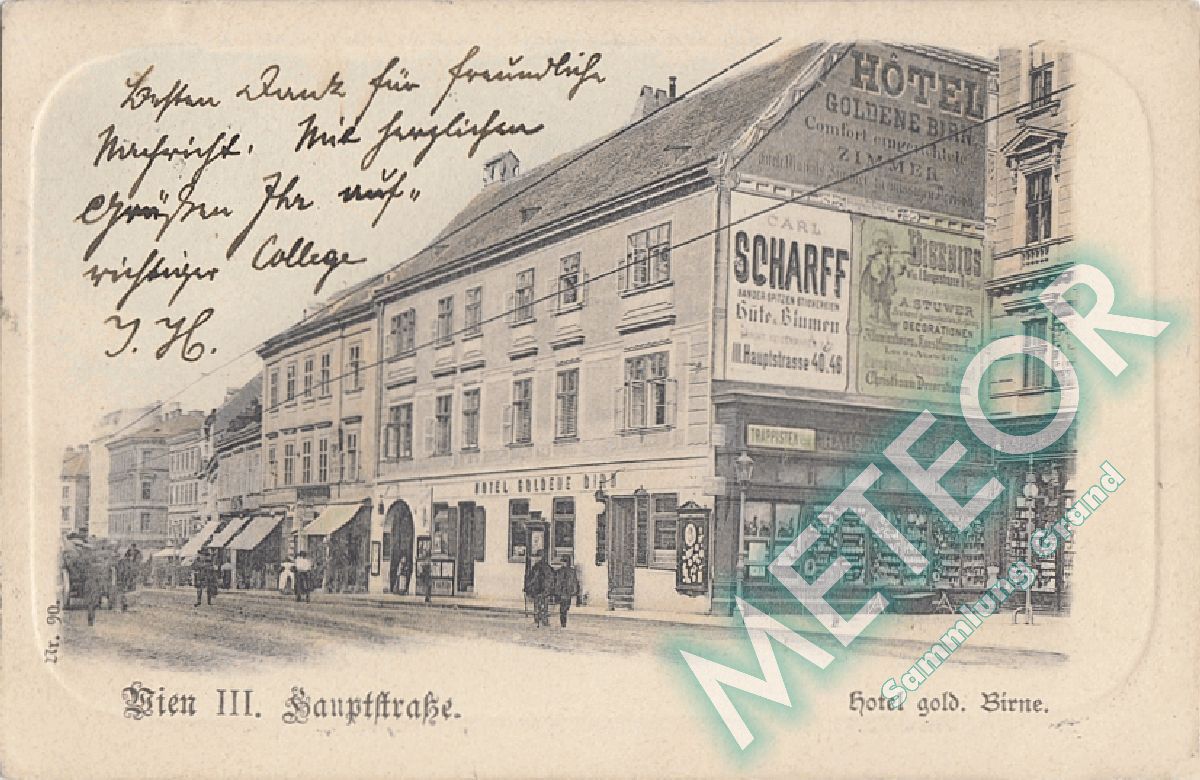 Besten Dank für freundliche
Nachricht. Mit herzlichen
Grüßen Ihr auf-
richtiger College
J. H.
HÔTEL
GOLDENE BIRN
Comfort eingerichtete
ZIMMER
CARL
SCHARFF
BÄNDER SPITZEN STICKEREIEN
Hüte & Blumen
III. Hauptstrasse 40, 46
A. STUWER
DECORATIONEN
TRAPPISTEN
HOTEL GOLDENE BIRN
Nr. 90.
Wien III. Hauptstraße.
Hotel gold. Birne.
METEOR
Sammlung Grand